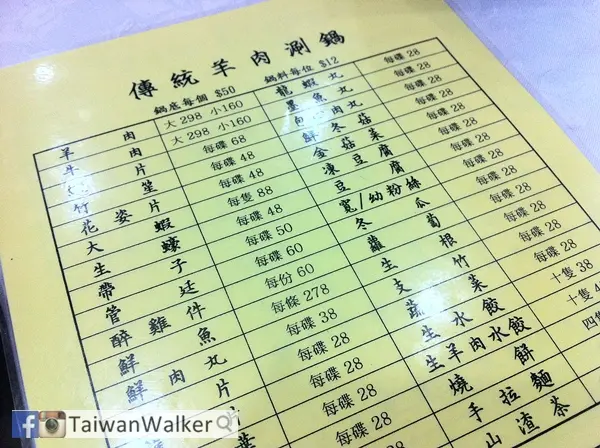 傳統羊肉涮鍋
鍋底每個 $50 鍋料每位 $12
羊肉 大 298 小160
牛肉 大 298 小160
片 每碟 68
竹笙 每碟 48
花姿片 每碟 48
大蝦 每隻 88
生蠔 每碟 48
帶子 每碟 50
管廷 每碟 60
醉雞件 每份 60
鮮魚 每條 278
鮮肉丸 每碟 38
片 每碟 28
每碟 28
每碟 28
龍蝦丸 每碟 28
墨魚丸 每碟 28
肉丸 每碟 28
鮮冬菇 每碟 28
金菇菜 每碟 28
凍豆腐 每碟 28
豆腐 每碟 28
寬/幼粉絲 每碟 28
冬瓜 每碟 28
蘿蔔 每碟 28
生根 每碟 28
支竹 每碟 28
蔬菜 每碟 28
生水餃 十隻 38
生羊肉水餃 十隻
燒餅
手拉麵
山渣茶
TaiwanWalker